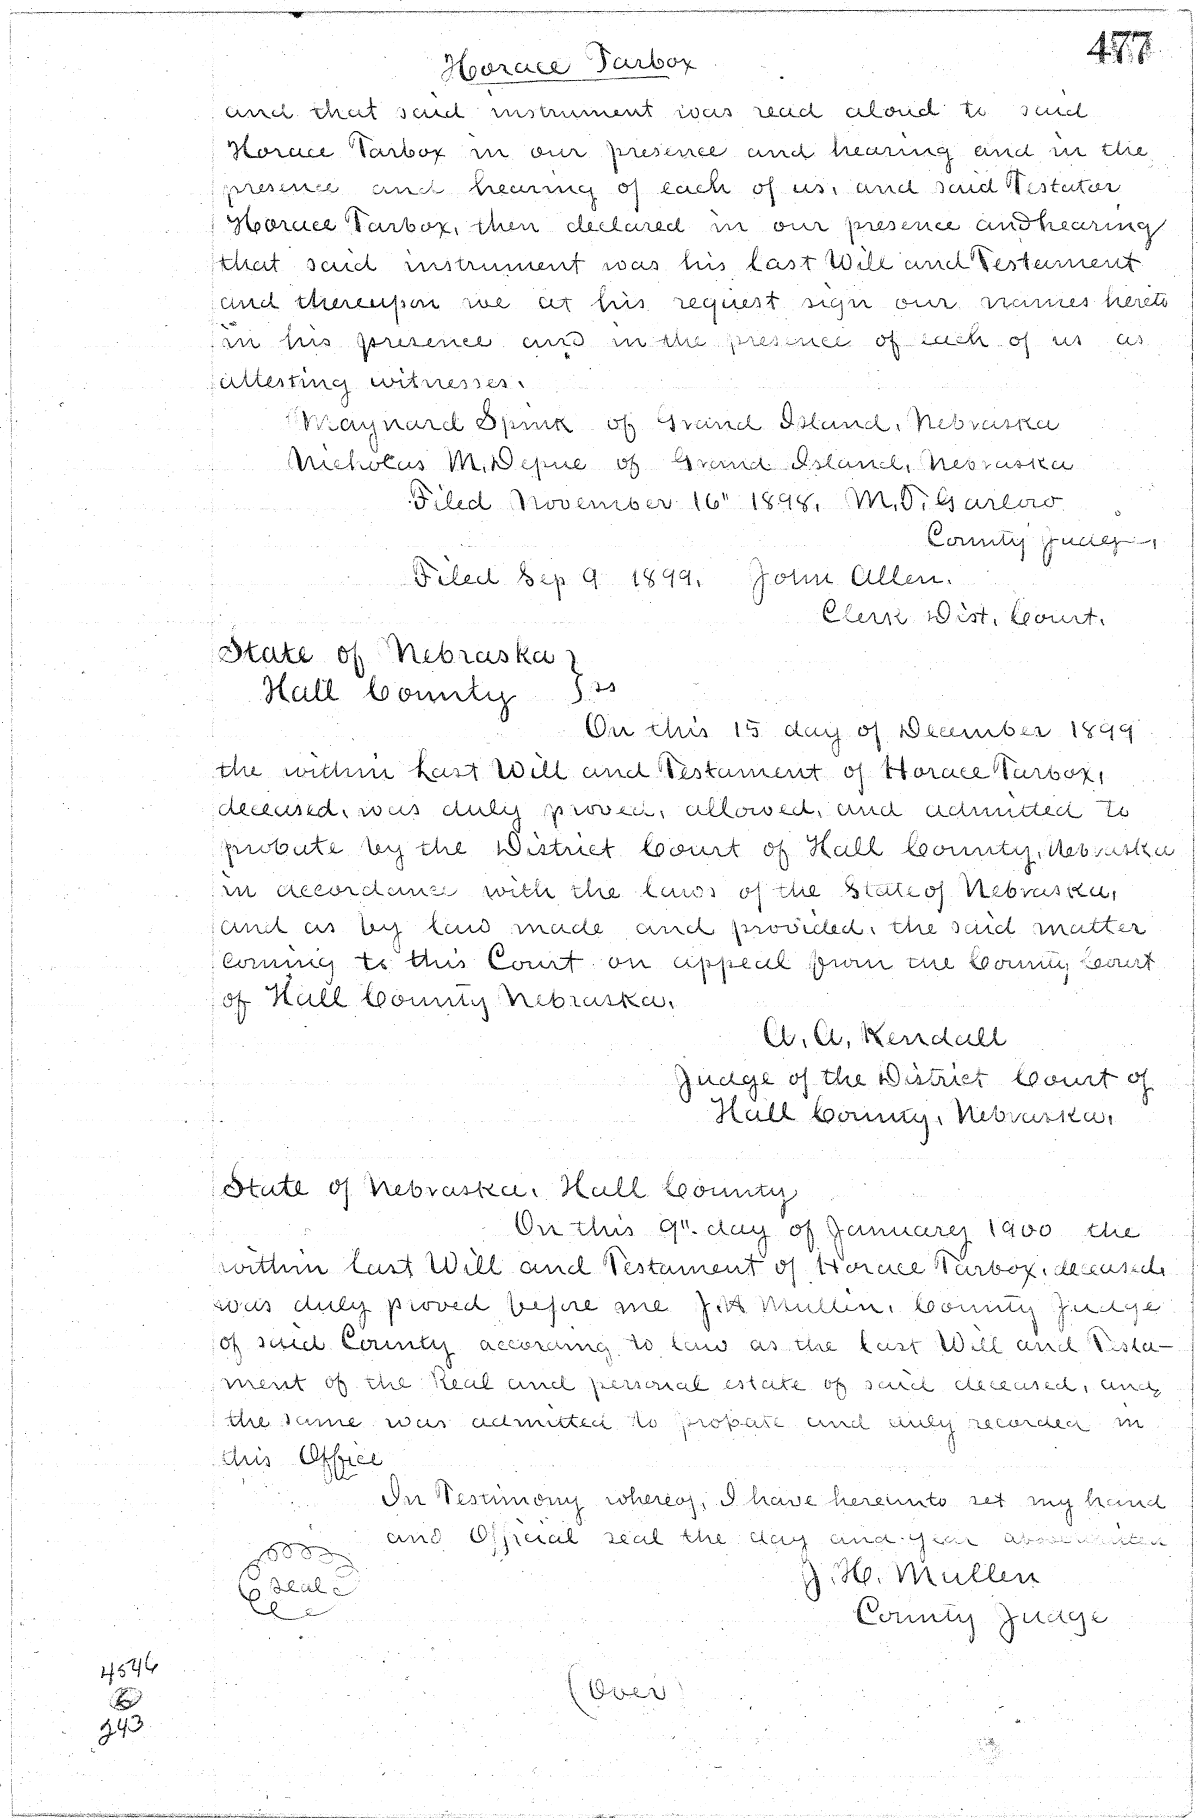 477
Horace Tarbox
and that said instrument was read aloud to said
Horace Tarbox in our presence and hearing and in the
presence and hearing of each of us, and said Testator
Horace Tarbox, then declared in our presence and hearing
that said instrument was his last Will and Testament
and thereupon we at his request sign our names hereto
in his presence and in the presence of each of us as
attesting witnesses.
Maynard Spink of Grand Island, Nebraska
Nicholas M. Depue of Grand Island, Nebraska
Filed November 16" 1898. M.T. Garlow
County Judge.
Filed Sep 9 1899. John Allen.
Clerk Dist. Court.
State of Nebraska }
Hall County } ss
On this 15 day of December 1899
the within Last Will and Testament of Horace Tarbox,
deceased, was duly proved, allowed, and admitted to
probate by the District Court of Hall County, Nebraska
in accordance with the laws of the State of Nebraska,
and as by law made and provided, the said matter
coming to this Court on appeal from the County Court
of Hall County Nebraska.
A. A. Kendall
Judge of the District Court of
Hall County, Nebraska.
State of Nebraska, Hall County
On this 9". day of January 1900 the
within last Will and Testament of Horace Tarbox, deceased,
was duly proved before me J.H Mullin, County Judge
of said County according to law as the last Will and Testa-
ment of the Real and personal estate of said deceased, and
the same was admitted to probate and duly recorded in
this Office
In Testimony whereof, I have hereunto set my hand
and Official seal the day and year above written
Seal
J. H. Mullen
County Judge
4546
243
(Over)